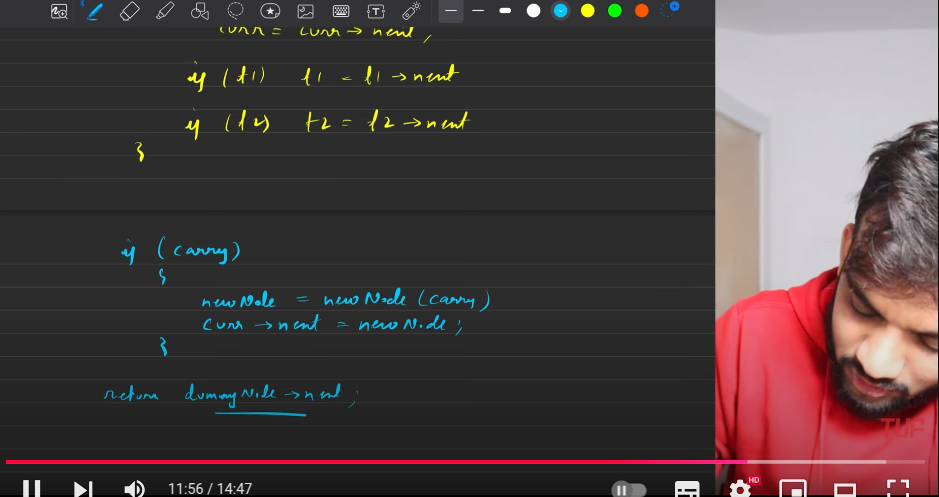 curr = curr → next ;
if (t1) t1 = t1 → next
if (t2) t2 = t2 → next
}
if (carry)
{
newNode = newNode (carry)
curr → next = newNode ;
}
return dummyNode → next ;
TUF
11:56 / 14:47
HD